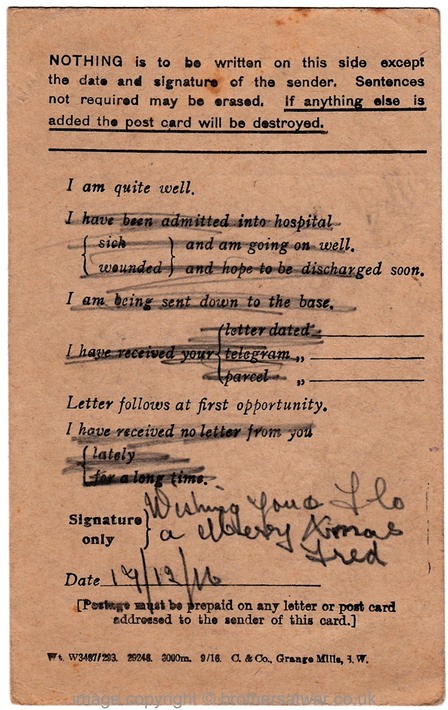 NOTHING is to be written on this side except
the date and signature of the sender. Sentences
not required may be erased. If anything else is
added the post card will be destroyed.
I am quite well.
I have been admitted into hospital
{ sick } and am going on well.
{ wounded } and hope to be discharged soon.
I am being sent down to the base.
{ letter dated
I have received your { telegram „
{ parcel „
Letter follows at first opportunity.
I have received no letter from you
{ lately
{ for a long time.
Wishing you & Flo
Signature } a Merry Xmas
only } Fred
Date 17/12/16
[Postage must be prepaid on any letter or post card
addressed to the sender of this card.]
Wt. W3497/293. 29248. 3000m. 9/16. C. & Co., Grange Mills, S.W.
image copyright © brothersatwar.co.uk